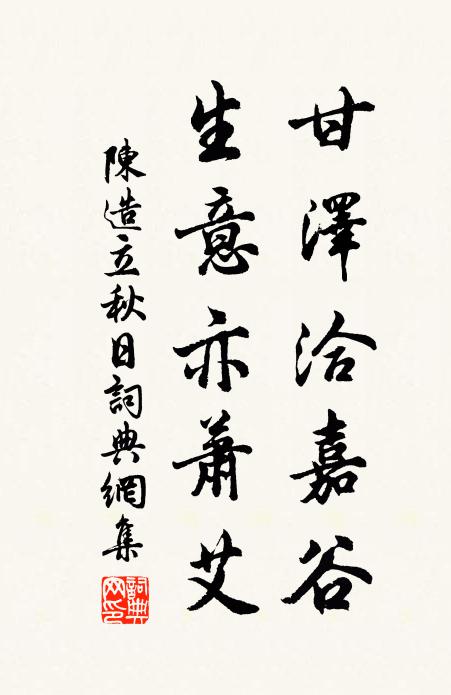 甘澤洽嘉谷
生意亦蕭艾
陳造立秋日詞典網集
詞典網印